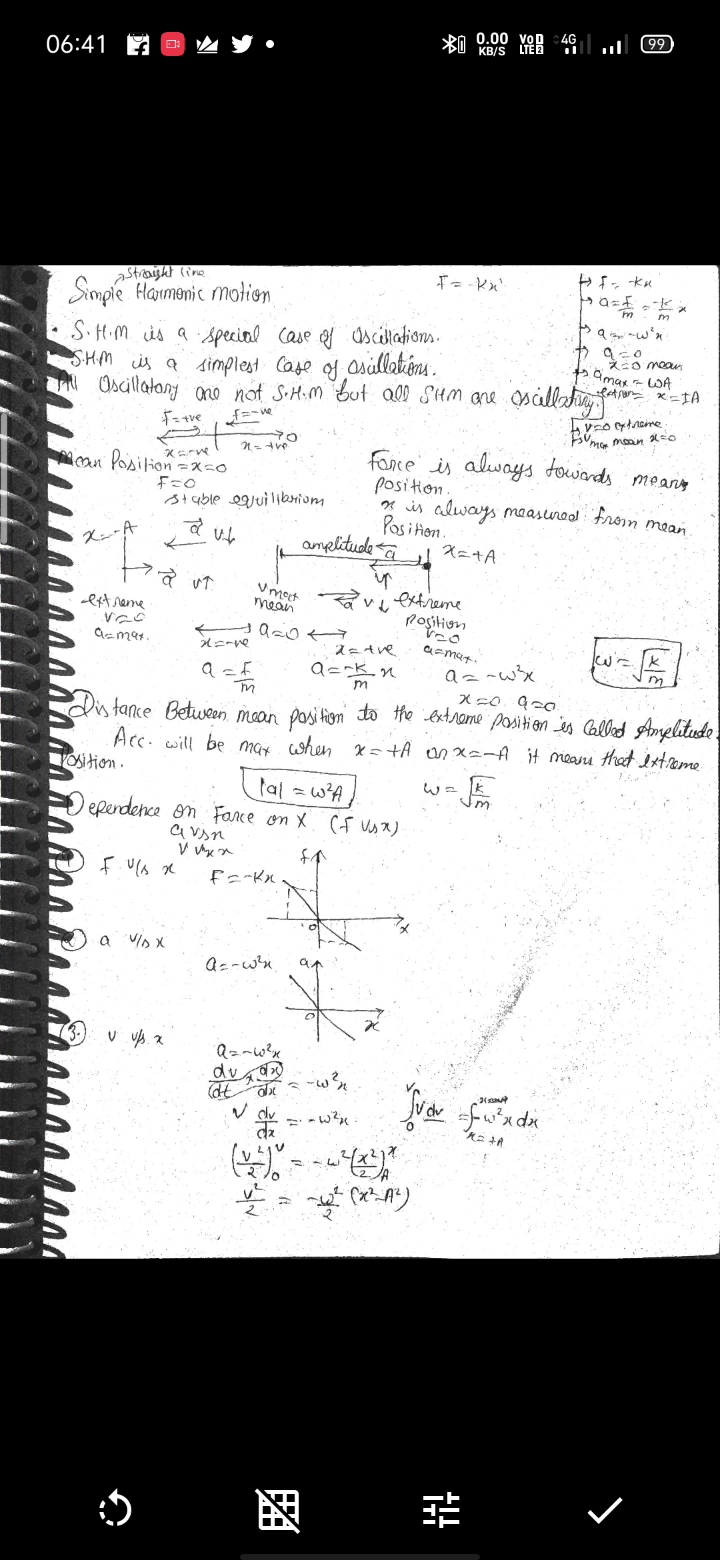 06:41
0.00 KB/S
VoD LTE2
4G
99
straight line
Simple Harmonic motion
F = -Kx
→ F = -kx
→ a = F/m = -k/m x
→ a = -ω²x
→ a=0
x=0 mean
→ amax = ωA
extreme x=±A
→ v=0 extreme
→ Vmax mean x=0
• S.H.M is a special case of Oscillations.
• S.H.M is a simplest Case of Oscillations.
All Oscillatory are not S.H.M but all SHM are Oscillatory.
F=+ve F=-ve
x=-ve 0 x=+ve
Mean Position = x=0
F=0
stable equilibrium
Force is always towards mean
position.
x is always measured from mean
Position.
x=-A a v↓
a v↑
extreme
v=0
a=max.
amplitude a x=+A
v↑
Vmax
mean
a v↓ extreme
Position
v=0
a=max.
x=-ve a=0 x=+ve
a = F/m a = -k/m x a = -ω²x
x=0 a=0
ω = √k/m
Distance Between mean position to the extreme position is Called Amplitude.
Acc. will be max when x=+A or x=-A it means that extreme
Position.
|a| = ω²A
ω = √k/m
Dependence on Force on X (F v/s x)
a vs x
v vs x
① F v/s x
F = -Kx
F
0
x
② a v/s x
a = -ω²x
a
0
x
③. v v/s x
a = -ω²x
dv/dt × dx/dx = -ω²x
v dv/dx = -ω²x
∫₀ᵛ v dv = ∫ -ω²x dx
x=+A
(v²/2)₀ᵛ = -ω²(x²/2)ₐˣ
v²/2 = -ω²/2 (x²-A²)